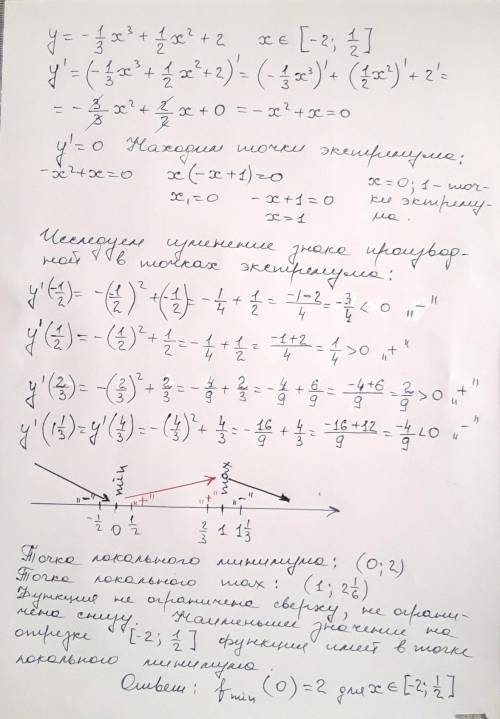 y = -1/3 x³ + 1/2 x² + 2   x ∈ [-2; 1/2]
y' = (-1/3 x³ + 1/2 x² + 2)' = (-1/3 x³)' + (1/2 x²)' + 2' =
= -3/3 x² + 2/2 x + 0 = -x² + x = 0
y' = 0 Находим точки экстремума:
-x² + x = 0   x(-x+1) = 0   x = 0; 1 - точ-
x₁ = 0   -x+1 = 0   ки эктрему-
x = 1   ма.
Исследуем изменение знака производ-
ной в точках экстремума:
y'(-1/2) = -(-1/2)² + (-1/2) = -1/4 + 1/2 = (-1-2)/4 = -3/4 < 0 „-"
y'(1/2) = -(1/2)² + 1/2 = -1/4 + 1/2 = (-1+2)/4 = 1/4 > 0 „+"
y'(2/3) = -(2/3)² + 2/3 = -4/9 + 2/3 = -4/9 + 6/9 = (-4+6)/9 = 2/9 > 0 „+"
y'(1 1/3) = y'(4/3) = -(4/3)² + 4/3 = -16/9 + 4/3 = (-16+12)/9 = -4/9 < 0 „-"
min max
„-" „+" „+" „-"
-1/2 0 1/2 2/3 1 1 1/3
Точка локального минимума: (0; 2)
Точка локального max: (1; 2 1/6)
Функция не ограничена сверху, не ограни-
чена снизу. Наименьшее значение на
отрезке [-2; 1/2] функция имеет в точке
локального минимума.
Ответ: f min (0) = 2 для x ∈ [-2; 1/2]